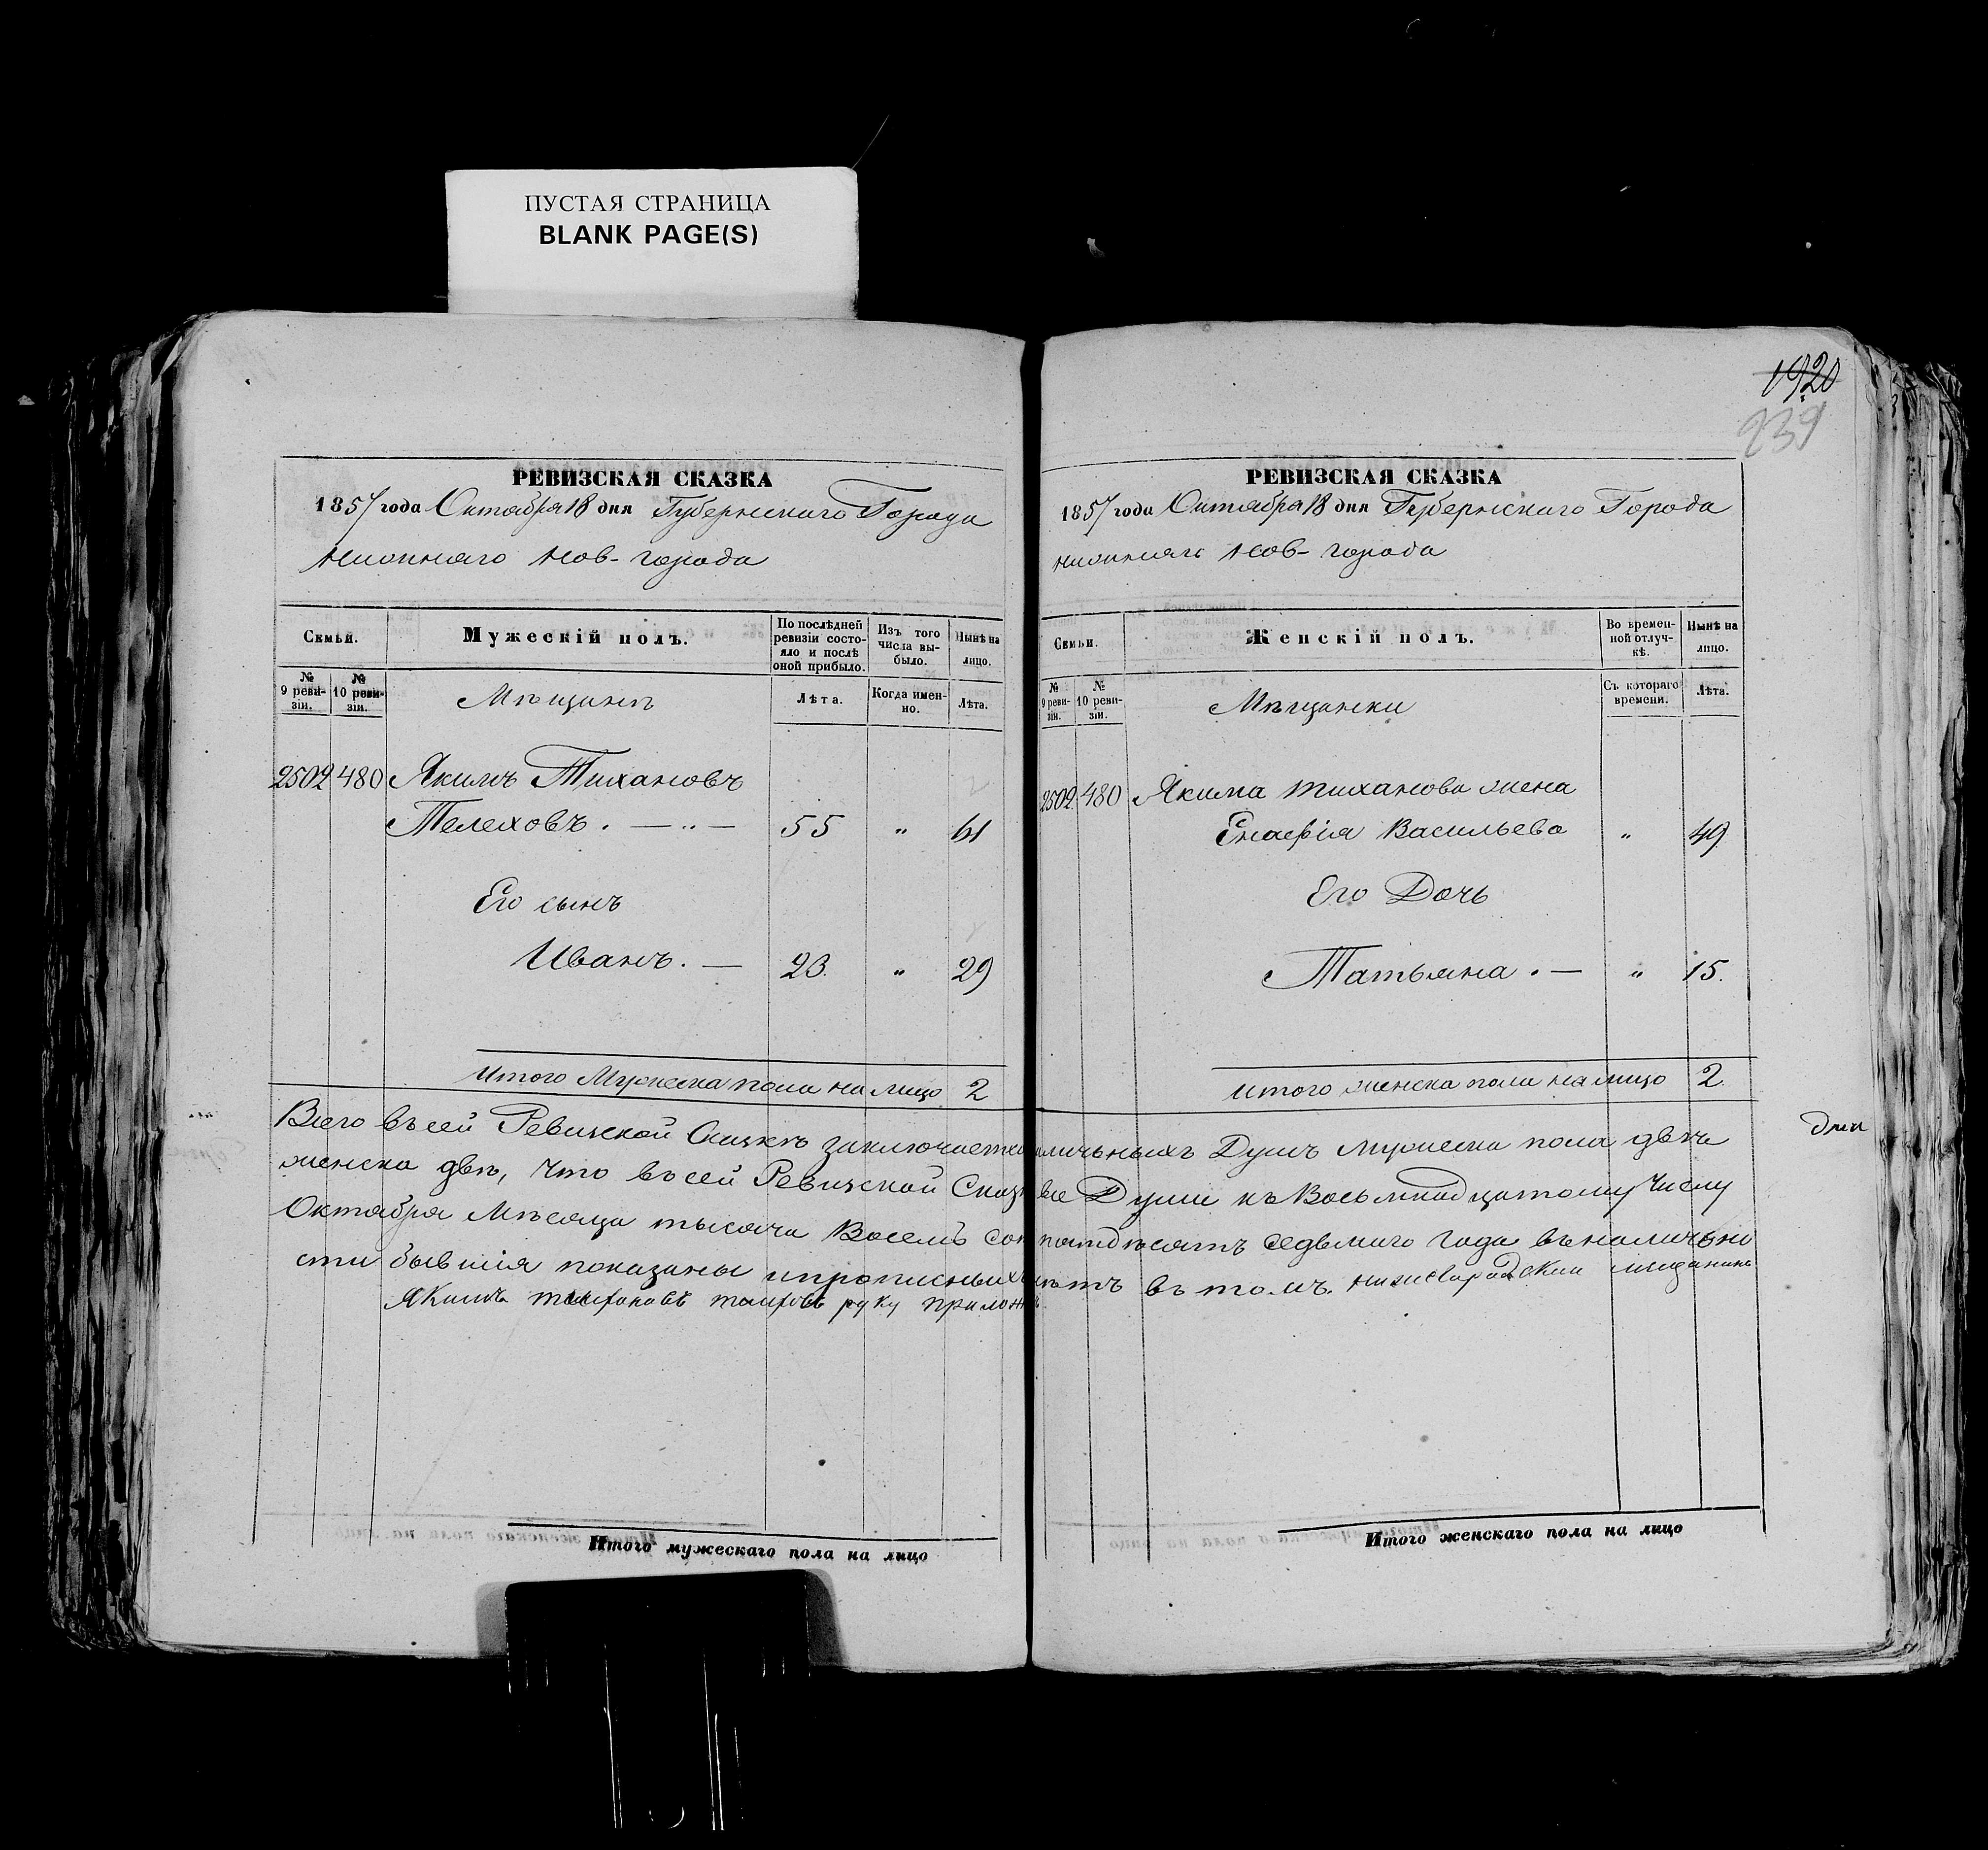 ПУСТАЯ СТРАНИЦА
BLANK PAGE(S)
РЕВИЗСКАЯ СКАЗКА
1857 года Октября 18 дня Губернскаго Города
Нижняго Нов-города
Семьи.
Мужескій полъ.
По послѣдней ревизіи состояло и послѣ оной прибыло.
Изъ того числа выбыло.
Нынѣ на лицо.
№ 9 ревизіи.
№ 10 ревизіи.
Мѣщанъ
Лѣта.
Когда именно.
Лѣта.
2502 480 Якимъ Тихановъ
Телеховъ . — „ — 55 „ 61
Его сынъ
Иванъ. — 23. „ 29
Итого Мужеска пола на лицо 2
1920
239
РЕВИЗСКАЯ СКАЗКА
1857 года Октября 18 дня Губернскаго Города
Нижняго Нов-города
Семьи.
Женскій полъ.
Во временной отлучкѣ.
Нынѣ на лицо.
№ 9 ревизіи.
№ 10 ревизіи.
Мѣщанки
Съ котораго времени.
Лѣта.
2502 480 Якима Тиханова жена
Васильева „ 49
Его Дочь
Татьяна . — „ 15.
Итого женска пола на лицо 2.
Всего въ сей Ревизской Сказкѣ заключается наличныхъ Душъ мужеска пола двѣ
женска двѣ, Что въ сей Ревизской Сказкѣ все Души къ Восьмнадцатому Числу
Октября Мѣсяца тысяча Восемь сотъ пятдѣсятъ седьмаго Года въ налично
сти бывшія показаны и прописныхъ нѣтъ въ томъ. мещанинъ
Якимъ руку приложилъ
Итого мужескаго пола на лицо
Итого женскаго пола на лицо